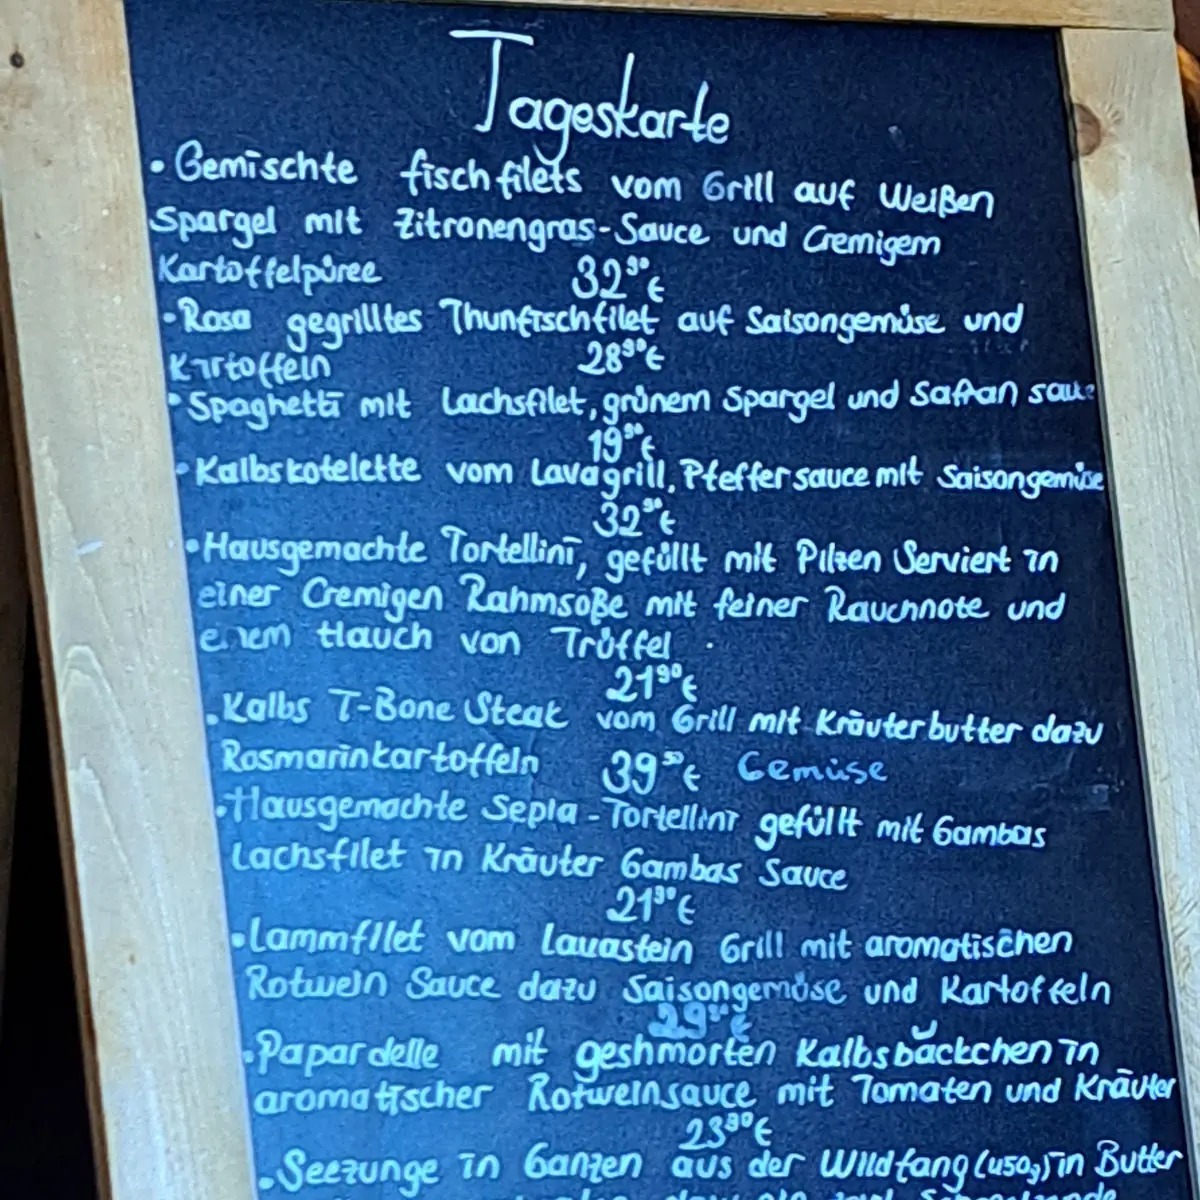 Tageskarte
• Gemischte fischfilets vom Grill auf Weißen
Spargel mit Zitronengras-Sauce und Cremigem
Kartoffelpüree 32⁹⁰€
• Rosa gegrilltes Thunfischfilet auf Saisongemüse und
Kartoffeln 28⁹⁰€
• Spaghetti mit Lachsfilet, grünem Spargel und Safran sauce
19⁹⁰€
• Kalbskotelette vom Lavagrill, Pfeffersauce mit Saisongemüse
32⁹⁰€
• Hausgemachte Tortellini, gefüllt mit Pilzen Serviert in
einer Cremigen Rahmsoße mit feiner Rauchnote und
einem Hauch von Trüffel .
21⁹⁰€
. Kalbs T-Bone Steak vom Grill mit Kräuterbutter dazu
Rosmarinkartoffeln 39⁹⁰€ Gemüse
. Hausgemachte Sepia-Tortellini gefüllt mit Gambas
Lachsfilet in Kräuter Gambas Sauce
21⁹⁰€
• Lammfilet vom Lavastein Grill mit aromatischen
Rotwein Sauce dazu Saisongemüse und Kartoffeln
29⁹⁰€
. Papardelle mit geshmorten Kalbsbäckchen in
aromatischer Rotweinsauce mit Tomaten und Kräuter
23⁹⁰€
. Seezunge in Ganzen aus der Wildfang (450g) in Butter